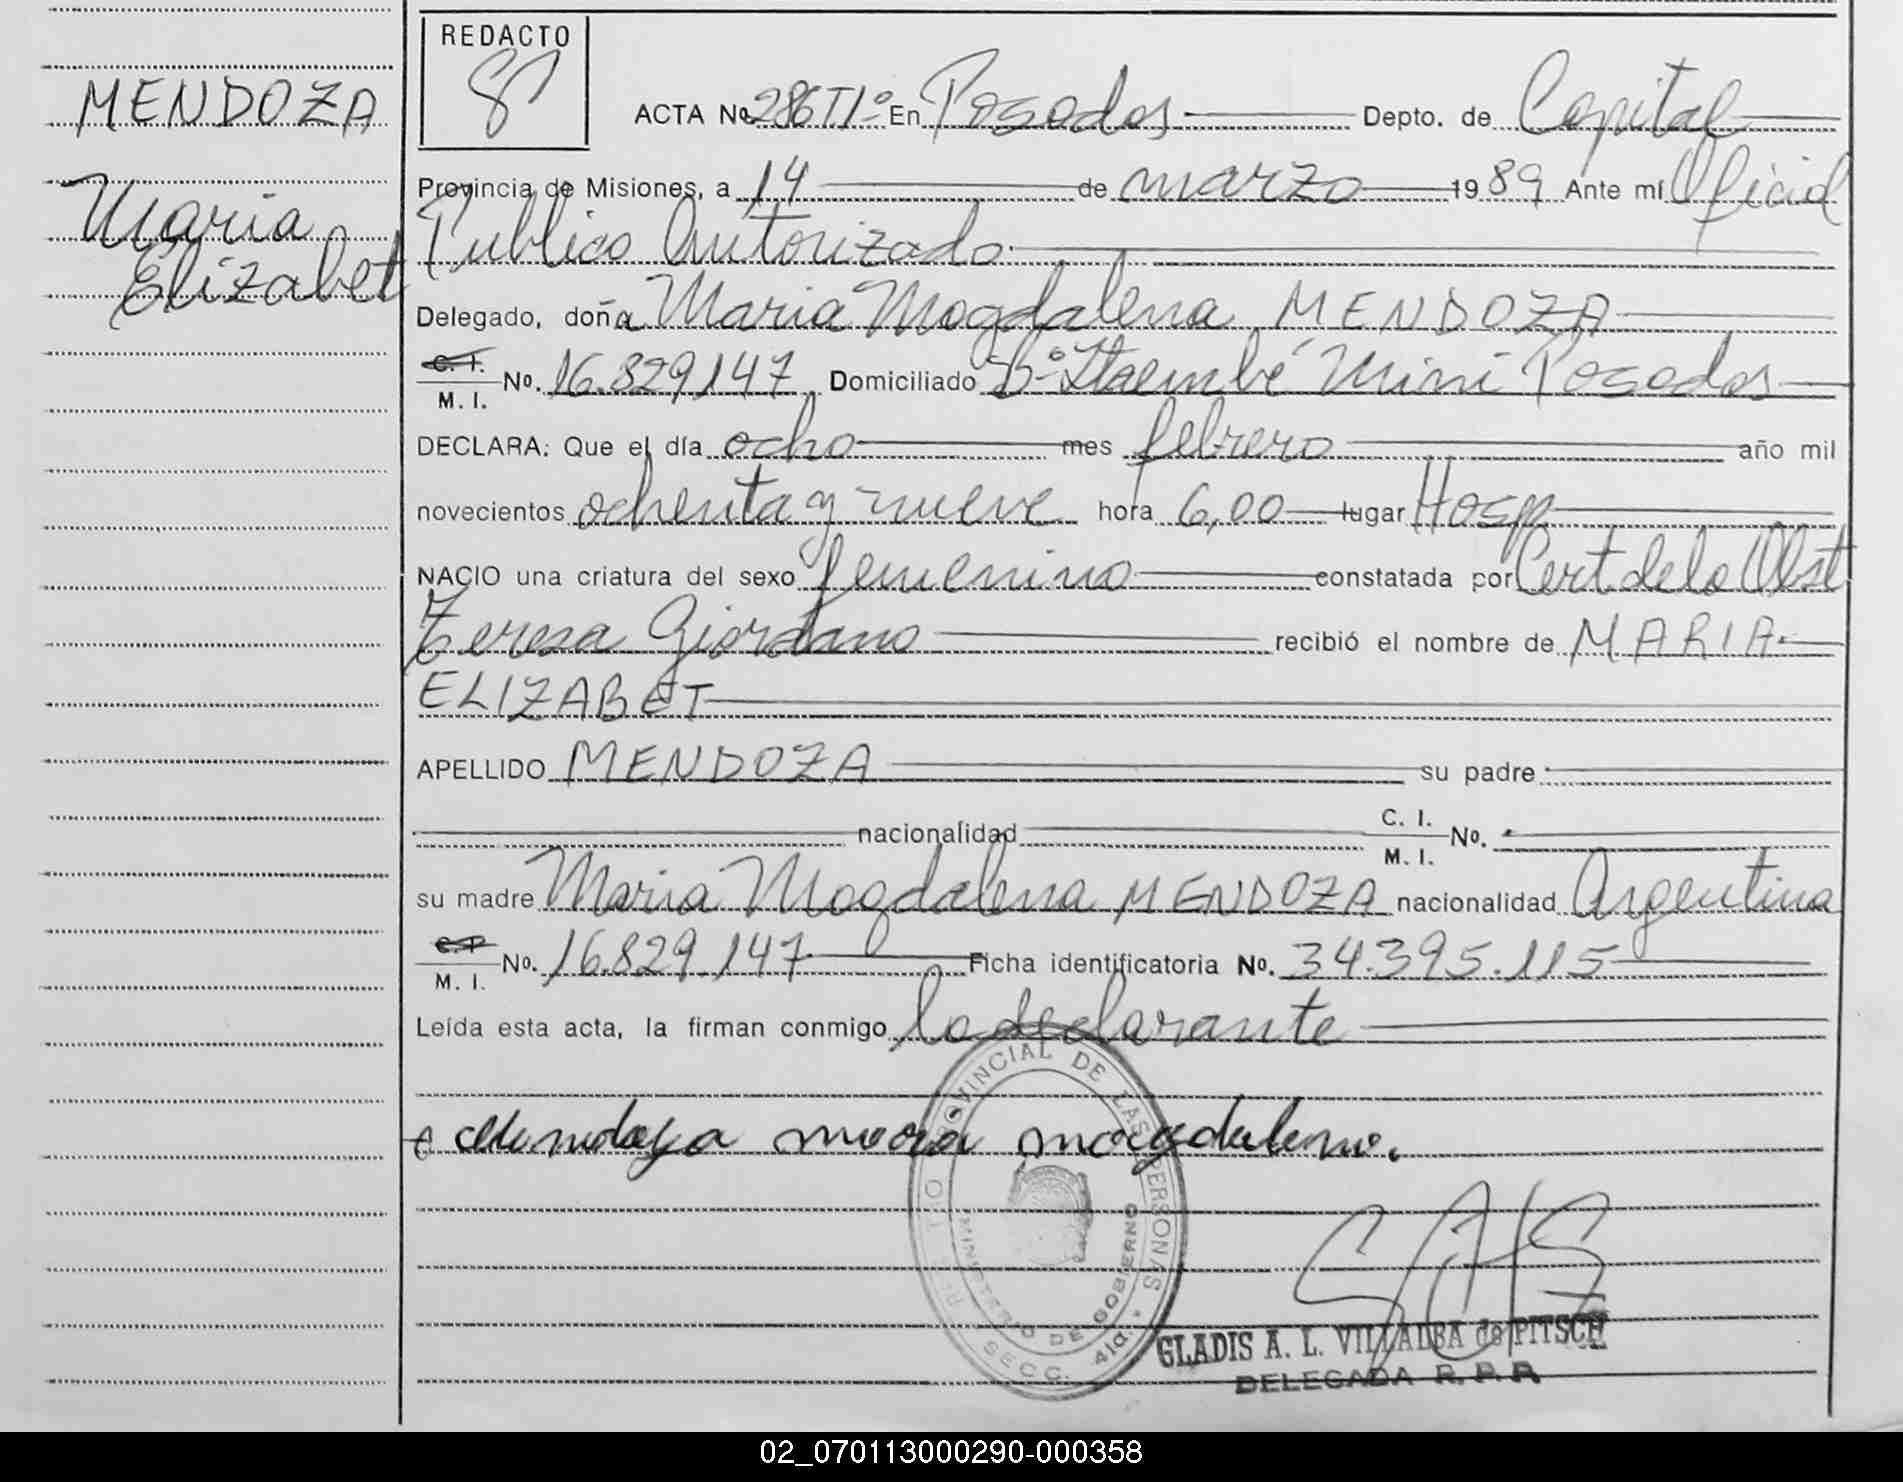 MENDOZA
Maria
Elizabet
REDACTO
ACTA No. 286 T1º En Posadas Depto. de Capital
Provincia de Misiones, a 14 de marzo 1989 Ante mí Oficial
Publico Autorizado
Delegado, doña Maria Magdalena MENDOZA
C. I.
M. I.
No. 16.829147 Domiciliado Bº Itaembé Mini Posadas
DECLARA: Que el día ocho mes febrero año mil
novecientos ochenta y nueve hora 6,00 lugar Hosp
NACIO una criatura del sexo femenino constatada por Cert de la Obst
Teresa Giordano recibió el nombre de MARIA
ELIZABET
APELLIDO MENDOZA su padre
nacionalidad C. I.
M. I. No.
su madre Maria Magdalena MENDOZA nacionalidad Argentina
M. I. No. 16.829.147 Ficha identificatoria No. 34.395.115
Leída esta acta, la firman conmigo la declarante
PROVINCIAL DE LAS PERSONAS
MINISTERIO DE GOBIERNO
SECC. 4ta.
magdalena.
GLADIS A. L. VILLALBA de PITSCH
DELEGADA R. P. P.
02_070113000290-000358